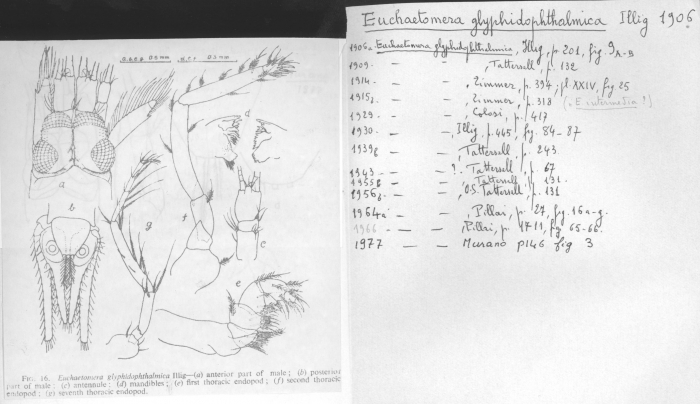 a, b, e, g 0.5 mm. d, c, f. 0.5 mm.
a
b
g
f
d
c
e
FIG. 16. Euchaetomera glyphidophthalmica Illig—(a) anterior part of male; (b) posterior
part of male; (c) antennule; (d) mandibles; (e) first thoracic endopod; (f) second thoracic
endopod; (g) seventh thoracic endopod.
Euchaetomera glyphidophthalmica Illig 1906
1906. Euchaetomera glyphidophthalmica, Illig, p. 201, fig 9A-B
1909 - — — , Tattersall, p. 132
1914 - — — , Zimmer, p. 394; pl XXIV, fig 25
1915 - — — , Zimmer, p. 318 (= E. intermedia ?)
1929 - — — , Colosi, p. 417
1930. — — , Illig. p. 445, fig. 84-87
1939 - — — , Tattersall p. 243
1943 - — — ? Tattersall, p. 67
1955 - — — , Tattersall, p. 131.
1956 - — — , O.S. Tattersall, p. 131
1964a - — — , Pillai, p. 27, fig. 16a-g.
1966 — — , Pillai, p. 1711, fig 65-66.
1977 — — Murano p146 fig 3